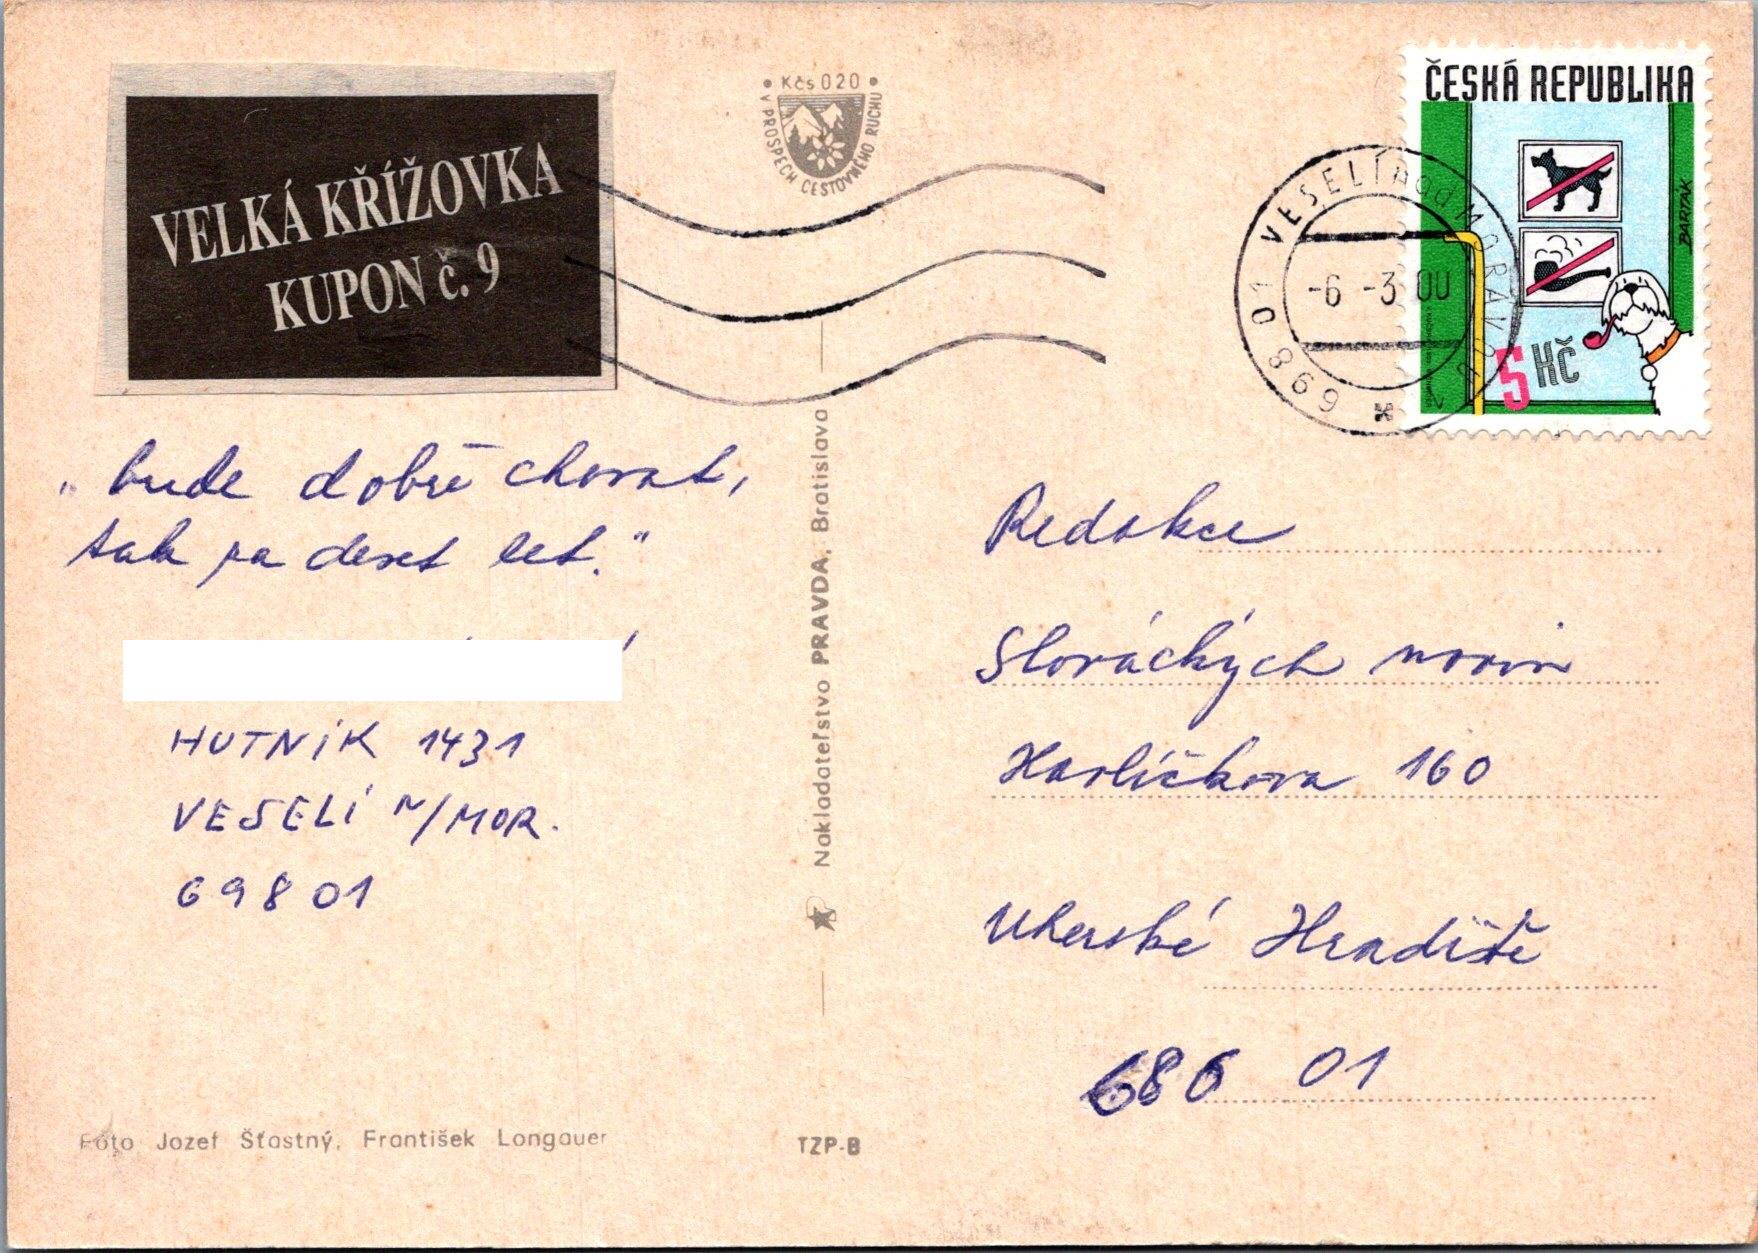 VELKÁ KŘÍŽOVKA
KUPON č. 9
• Kčs 020 •
V PROSPECH CESTOVNÉHO RUCHU
ČESKÁ REPUBLIKA
BARTÁK
5 Kč
698 01 VESELÍ nad MORAVOU
-6 -3 00
„bude dobře chovat,
tak za deset let."
HUTNÍK 1431
VESELÍ N/MOR.
698 01
Nakladateľstvo PRAVDA, Bratislava
Redakce
Slováckých novin
Havlíčkova 160
Uherské Hradiště
686 01
Foto Jozef Šťastný, František Longauer
TZP-B